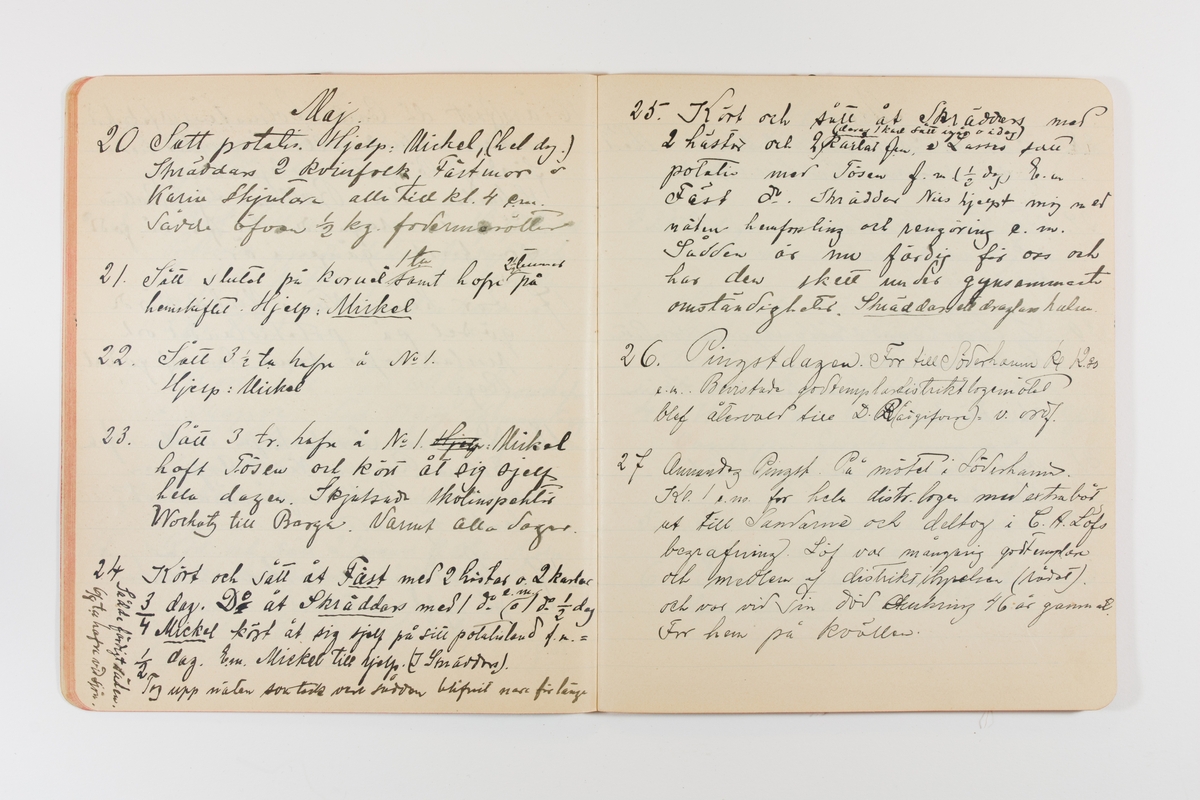 Maj.
20 Satt potatis. Hjelp: Mickel, (hel dag.)
Skräddars 2 kvinfolk, Fästmor o
Karin Skjutare alla till kl. 4 e.m.
Sådde öfver ½ kg. fodermorötter
21. Sått slutet på kornet 1 ta samt hafre 2 tunnor på
hemskiftet. Hjelp: Mickel
22. Sått 3 ½ ta hafre å No 1.
Hjelp: Mickel
23. Sått 3 tr. hafre å No 1. Hjelp: Mickel
haft Tösen och kört åt sig sjelf
hela dagen. Skjutsade skolinspektör
till Berga. Varmt alla dagar.
24 Kört och sått åt Fäst med 2 hästar o. 2 karlar
3/4 dag. Do åt Skräddars med 1 do e.m. (o 1) do ½ dag
Mickel kört åt sig sjelf på sitt potatisland f.m. =
½ dag. E.m. Mickel till hjelp. (I Skrädders).
Tog upp näten som tack vare sådden blifvit nere för länge
Sådde färdigt säden.
hafre vid sjön.
25. Kört och sått åt Skrädders med
2 hästar och 2 karlar f.m. o Lasses satt
(deraf 1 karl satt igen o i dag)
potatis med Tösen f.m (½ dag) E.m
Fäst do. Skrädder Nils hjelpt mig med
näten hemforsling och rengöring e.m.
Sådden är nu färdig för oss och
har den skett under gynsammaste
omständigheter. Skräddars ett draglass halm.
26. Pingstdagen. For till Söderhamn kl 12
e.m. Bevistade godtemplardistriktlogemötet
blef återvald till D. R(ådgifvare). v. ordf.
27 Annandag Pingst. På mötet i Söderhamn.
Kl. 1 e.m. for hela distr.logen med extrabåt
ut till Sandarne och deltog i C. A. Löfs
begrafning. Löf var mångårig godtemplare
och medlem af distriktstyrelsen (rådet).
och var vid sin död omkring 46 år gammal.
For hem på kvällen.